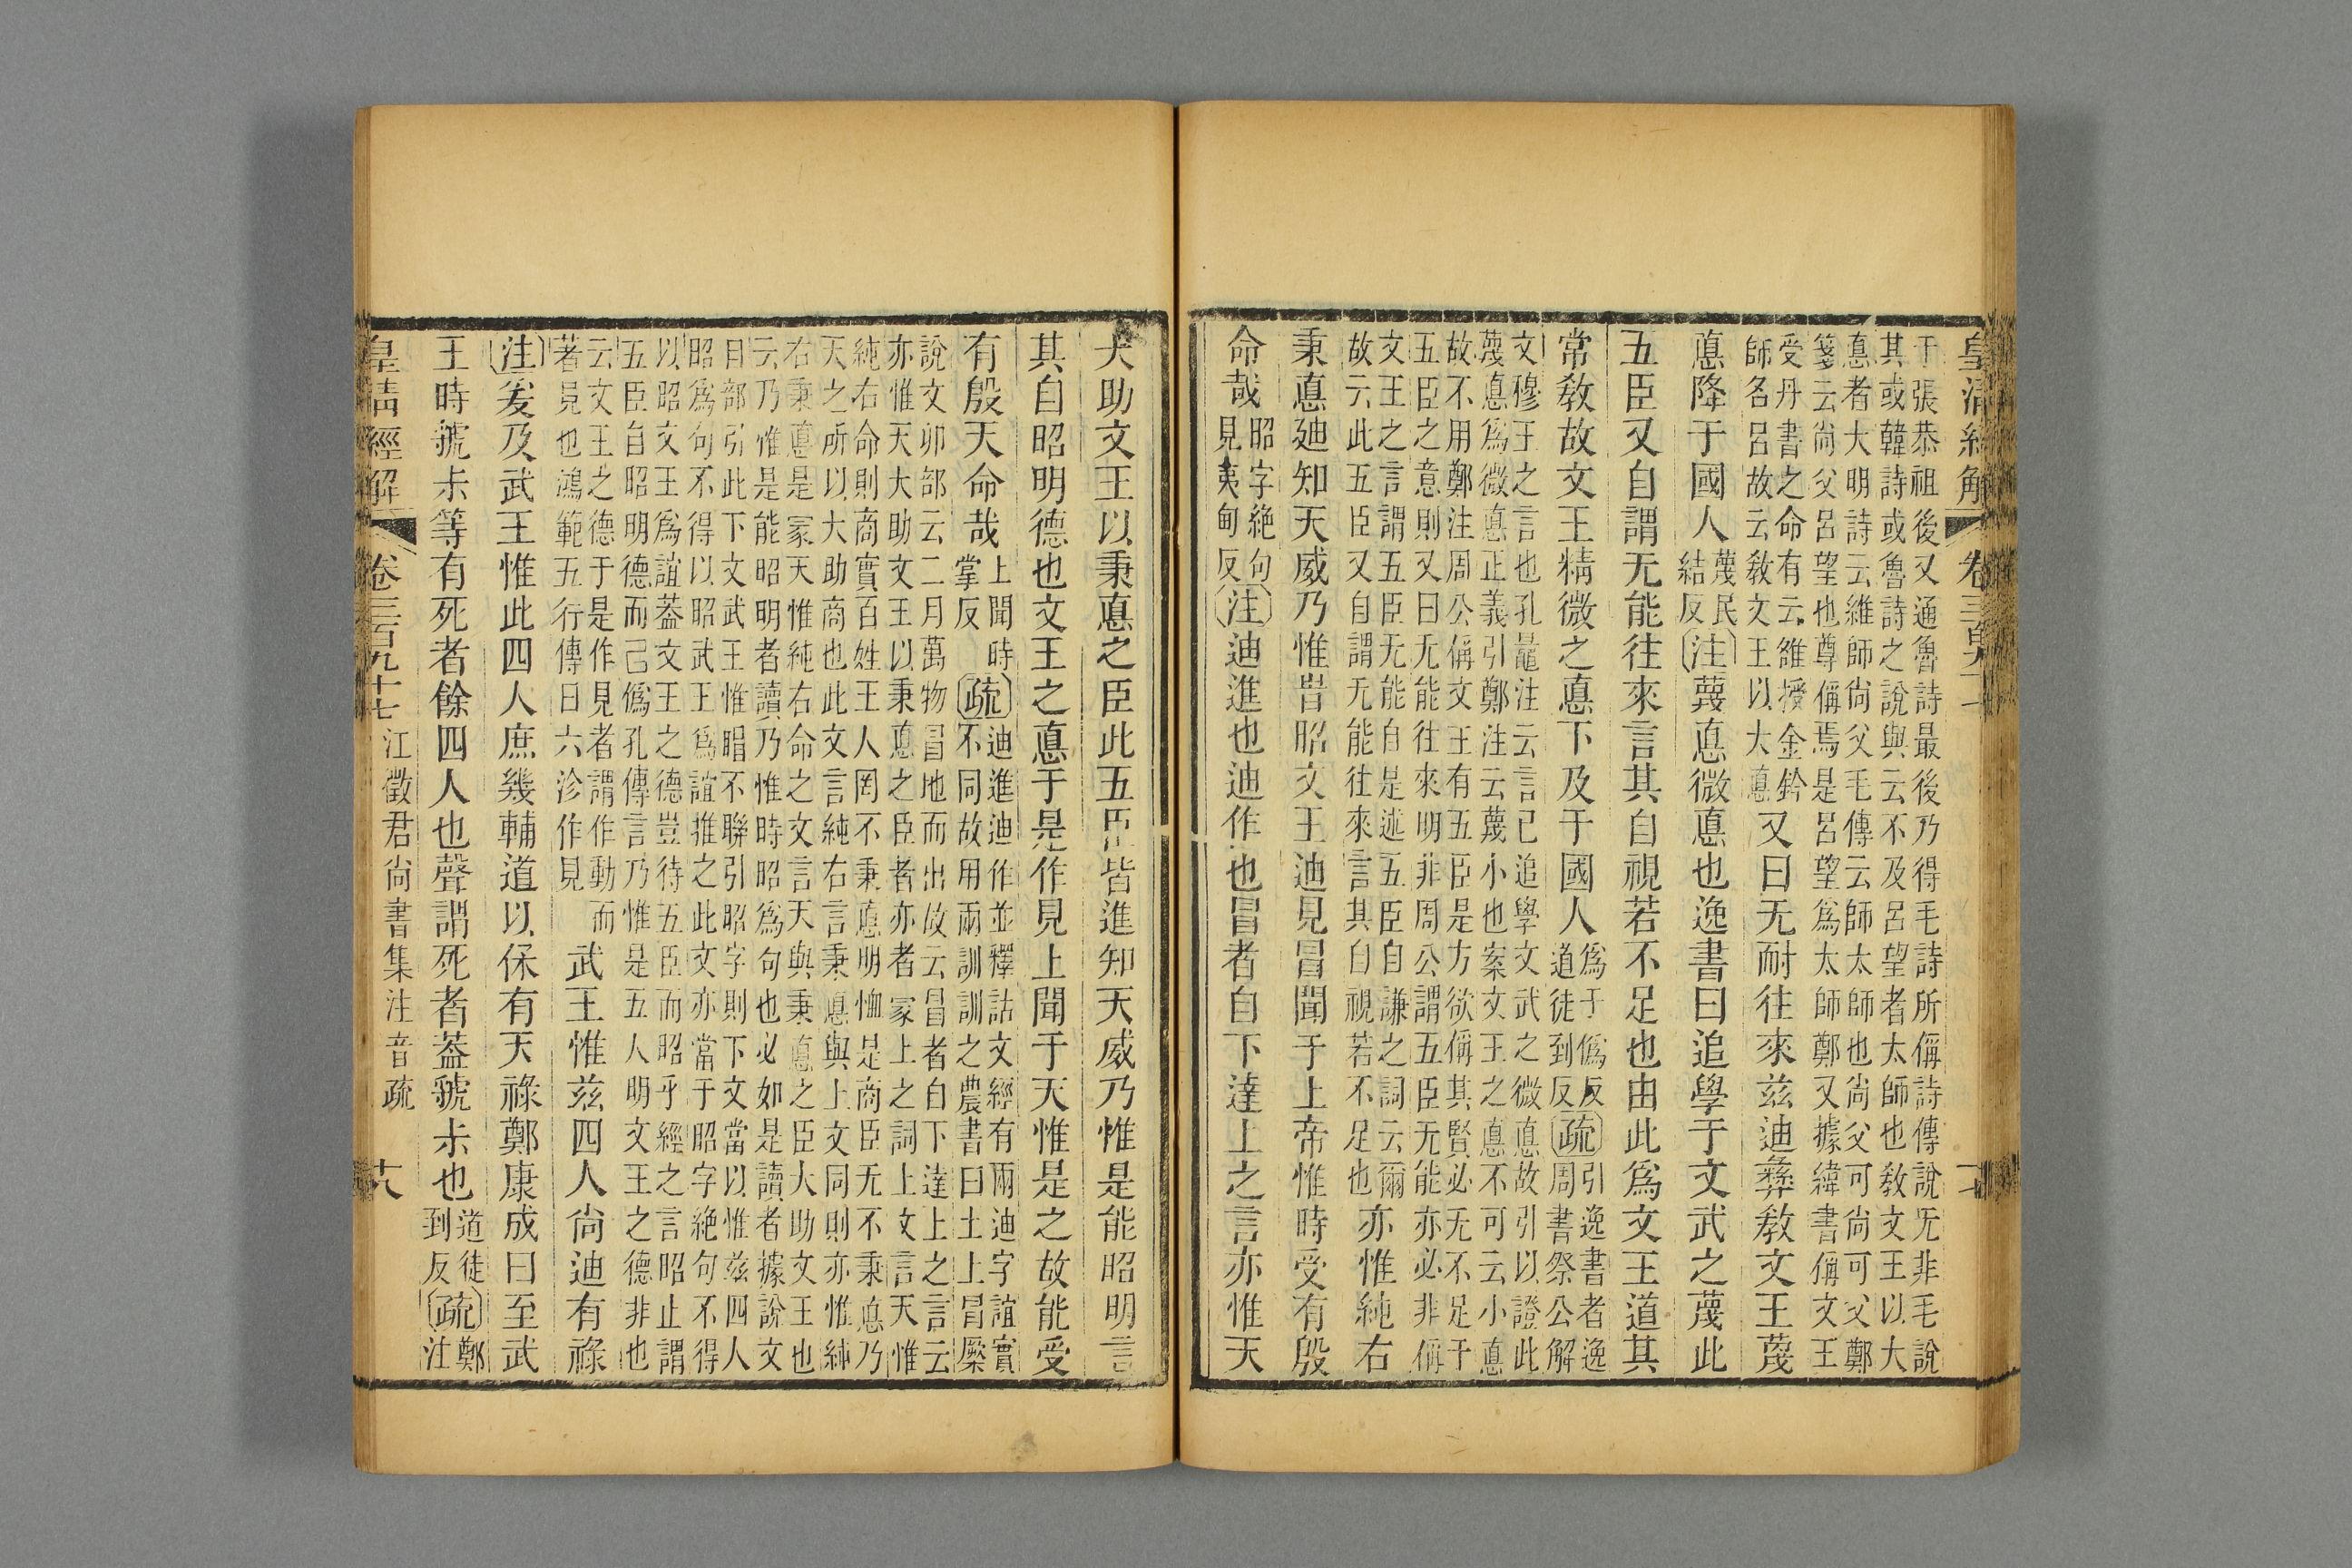 皇清經解
卷三百九十七
十七
于張恭祖後又通魯詩最後乃得毛詩所偁詩傳說旡非毛說
其或韓詩或魯詩之說與云不及呂望者太師也敎文王以大
悳者大明詩云維師尙父毛傳云師太師也尙父可尙可父鄭
箋云尙父呂望也尊偁焉是呂望爲太師鄭又據緯書偁文王
受丹書之命有云雒授金鈐
師名呂故云敎文王以大悳
又曰无耐往來茲迪彝敎文王蔑
悳降于國人
蔑民
結反
注蔑悳微悳也逸書曰追學于文武之蔑此
五臣又自謂无能往來言其自視若不足也由此爲文王道其
常敎故文王精微之悳下及于國人
爲于僞反
道徒到反
疏
引逸書者逸
周書祭公解
文穆王之言也孔鼂注云言已追學文武之微悳故引以證此
蔑悳爲微悳正義引鄭注云蔑小也案文王之悳不可云小悳
故不用鄭注周公偁文王有五臣是方欲偁其賢必无不足于
五臣之意則又曰无能往來明非周公謂五臣无能亦必非偁
文王之言謂五臣无能自是述五臣自謙之詞云爾
故云此五臣又自謂无能往來言其自視若不足也
亦惟純右
秉悳廸知天威乃惟旹昭文王迪見冒聞于上帝惟時受有殷
命哉
昭字絶句
見夷甸反
注迪進也迪作也冒者自下達上之言亦惟天
大助文王以秉悳之臣此五臣皆進知天威乃惟是能昭明言
其自昭明德也文王之悳于是作見上聞于天惟是之故能受
有殷天命哉
上聞時
掌反
疏
迪進迪作並釋詁文經有兩迪字誼實
不同故用兩訓訓之農書曰土上冒橜
說文卯部云二月萬物冒地而出故云冒者自下達上之言云
亦惟天大助文王以秉悳之臣者亦者冡上之詞上文言天惟
純右命則商實百姓王人罔不秉悳明恤是商臣无不秉悳乃
天之所以大助商也此文言純右言秉悳與上文同則亦惟純
右秉悳是冡天惟純右命之文言天與秉悳之臣大助文王也
云乃惟是能昭明者讀乃惟時昭爲句也必如是讀者據說文
目部引此下文武王惟䁌不聯引昭字則下文當以惟茲四人
昭爲句不得以昭武王爲誼推之此文亦當于昭字絶句不得
以昭文王爲誼葢文王之德豈待五臣而昭乎經之言昭止謂
五臣自昭明德而己僞孔傳言乃惟是五人明文王之德非也
云文王之德于是作見者謂作動而
著見也鴻範五行傳曰六沴作見
武王惟茲四人尙迪有祿
注爰及武王惟此四人庶幾輔道以保有天祿鄭康成曰至武
王時虢未等有死者餘四人也聲謂死者葢虢未也
道徒
到反
疏
鄭
注
皇清經解
卷三百九十七
江徵君尙書集注音疏
十八